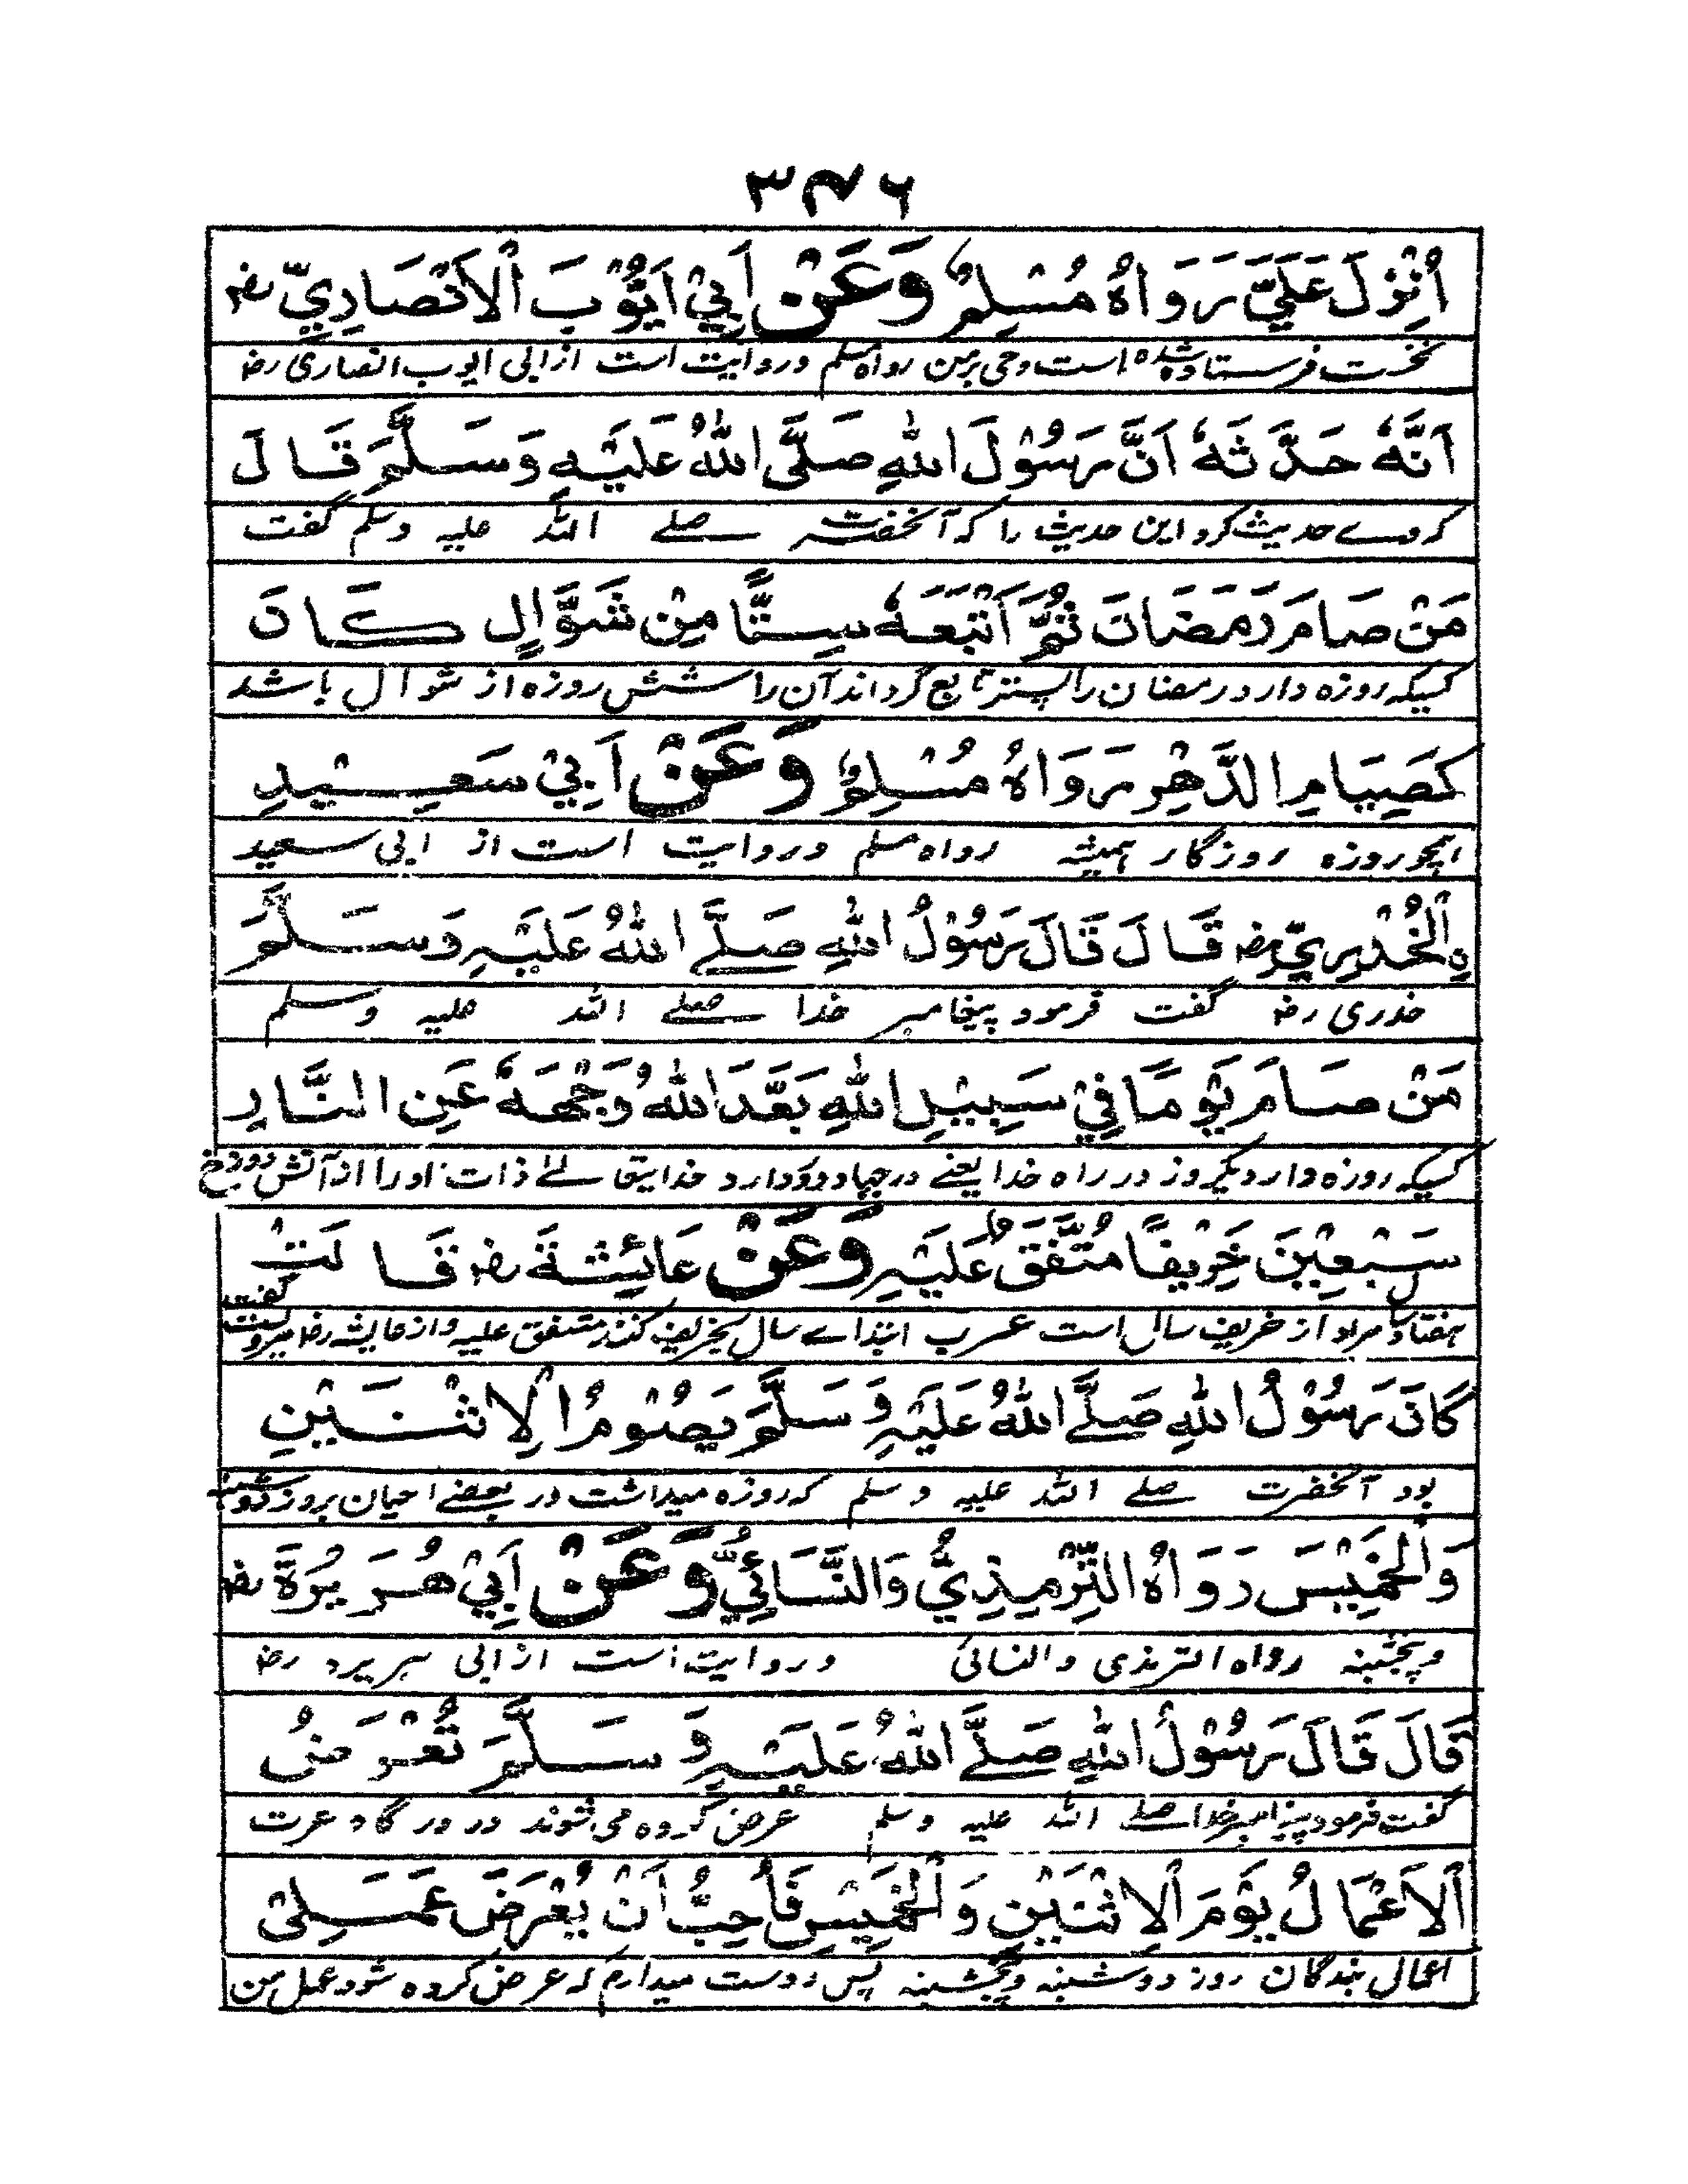 ۳۴۶
اُنْزِلَ عَلَيَّ رَوَاهُ مُسْلِمٌ وَعَنْ اَبِيْ اَيُّوْبَ الْاَنْصَارِيِّ رض
نخست فرستاده شده است وحی برمن رواه مسلم و روایت است از ابی ایوب انصاری رض
اَنَّهٗ حَدَّثَهٗ اَنَّ رَسُوْلَ اللهِ صَلَّى اللهُ عَلَيْهِ وَسَلَّمَ قَالَ
که وے حدیث کرد این حدیث را که آنحضرت صلے اللہ علیہ وسلم گفت
مَنْ صَامَ رَمَضَانَ ثُمَّ اَتْبَعَهٗ سِتًّا مِنْ شَوَّالٍ كَانَ
کسیکه روزه دارد رمضان را پستر تابع گرداند آن را شش روزه از شوال باشد
كَصِيَامِ الدَّهْرِ رَوَاهُ مُسْلِمٌ وَعَنْ اَبِيْ سَعِيْدِ
همچو روزه روزگار همیشه رواه مسلم و روایت است از ابی سعید
ہِ الْخُدْرِيِّ رض قَالَ قَالَ رَسُوْلُ اللهِ صَلَّے اللهُ عَلَيْهِ وَسَلَّمَ
خدری رض گفت فرمود پیغامبر خدا صلے اللہ علیہ وسلم
مَنْ صَامَ يَوْمًا فِيْ سَبِيْلِ اللهِ بَعَّدَ اللهُ وَجْهَهٗ عَنِ النَّارِ
کسیکه روزه دارد یکروز در راه خدا یعنے در جهاد دور دارد خدایتعالے ذات او را از آتش دوزخ
سَبْعِيْنَ خَرِيْفًا مُتَّفَقٌ عَلَيْهِ وَعَنْ عَائِشَةَ رض قَالَتْ
هفتاد سال مراد از خریف سال است عرب ابتداے سال بخریف کنند متفق علیه و از عایشه رض مرویست گفت
كَانَ رَسُوْلُ اللهِ صَلَّے اللهُ عَلَيْهِ وَسَلَّمَ يَصُوْمُ الْاِثْنَيْنِ
بود آنحضرت صلے اللہ علیہ وسلم که روزه میداشت در بعضے احیان بروز دوشنبه
وَالْخَمِيْسَ رَوَاهُ التِّرْمِذِيُّ وَالنَّسَائِيُّ وَعَنْ اَبِيْ هُرَيْرَةَ رض
و پنجشنبه رواه الترمذی والنسائی و روایت است از ابی هریره رض
قَالَ قَالَ رَسُوْلُ اللهِ صَلَّے اللهُ عَلَيْهِ وَسَلَّمَ تُعْرَضُ
گفت فرمود پیغامبر خدا صلے اللہ علیہ وسلم عرض کرده می شوند در درگاه عزت
الْاَعْمَالُ يَوْمَ الْاِثْنَيْنِ وَالْخَمِيْسِ فَاُحِبُّ اَنْ يُعْرَضَ عَمَلِيْ
اعمال بندگان روز دوشنبه و پنجشنبه پس دوست میدارم که عرض کرده شود عمل من